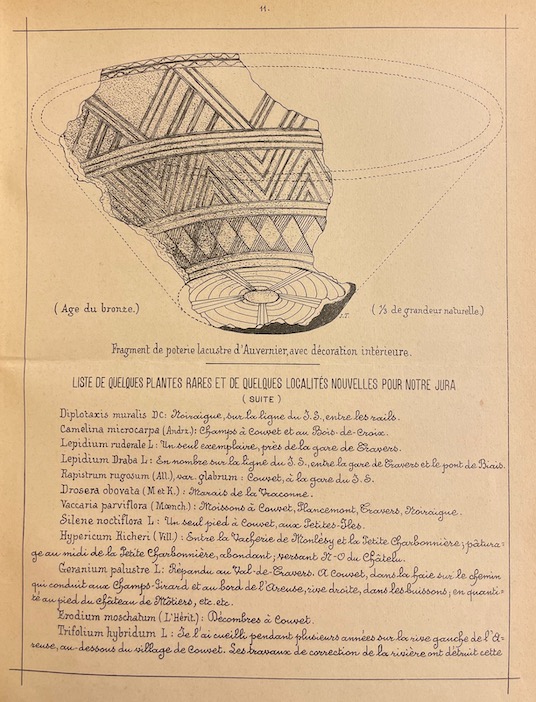 11.
(Age du bronze.)
(⅓ de grandeur naturelle.)
J.T.
Fragment de poterie lacustre d'Auvernier, avec décoration intérieure.
LISTE DE QUELQUES PLANTES RARES ET DE QUELQUES LOCALITÉS NOUVELLES POUR NOTRE JURA
(SUITE)
Diplotaxis muralis DC: Noiraigue, sur la ligne du J.S., entre les rails.
Camelina microcarpa (Andrz.): Champs à Couvet et au Bois-de-Croix.
Lepidium ruderale L: Un seul exemplaire, près de la gare de Travers.
Lepidium Draba L: En nombre sur la ligne du J.S., entre la gare de Travers et le pont de Biais.
Rapistrum rugosum (All.), var. glabrum: Couvet, à la gare du J.S.
Drosera obovata (M et K.): Marais de la Vraconne.
Vaccaria parviflora (Mœnch.): Moissons à Couvet, Plancemont, Travers, Noiraigue.
Silene noctiflora L: Un seul pied à Couvet, aux Petites-Iles.
Hypericum Richeri (Vill.): Entre la Vacherie de Monlésy et la Petite Charbonnière; pâtura-
ge au midi de la Petite Charbonnière, abondant; versant N-O du Châtelu.
Geranium palustre L: Répandu au Val-de-Travers. A Couvet, dans la haie sur le chemin
qui conduit aux Champs-Girard et au bord de l'Areuse, rive droite, dans les buissons; en quanti-
té au pied du Château de Môtiers, etc. etc.
Erodium moschatum (L'Hérit): Décombres à Couvet.
Trifolium hybridum L: Je l'ai cueilli pendant plusieurs années sur la rive gauche de l'A-
reuse, au-dessous du village de Couvet. Les travaux de correction de la rivière ont détruit cette